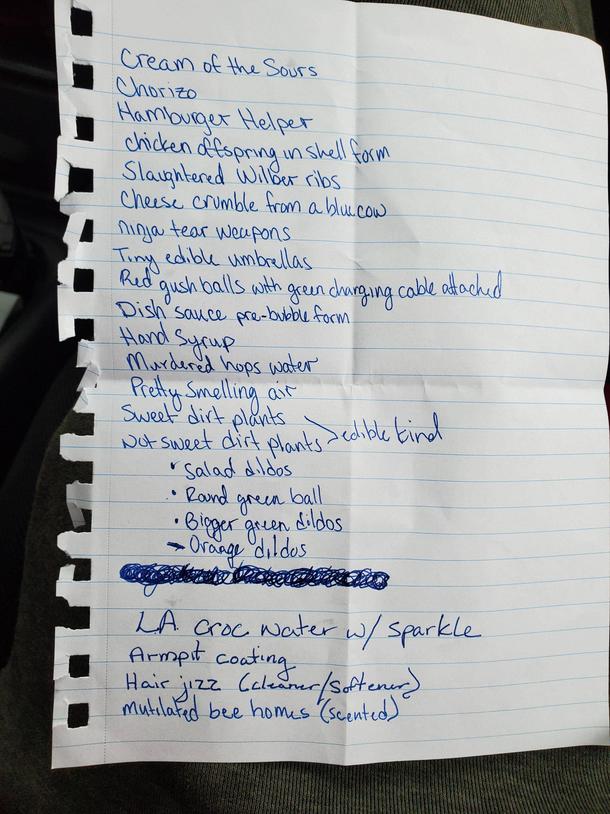 Cream of the Sours
Chorizo
Hamburger Helper
chicken offspring in shell form
Slaughtered Wilber ribs
Cheese crumble from a blue cow
ninja tear weapons
Tiny edible umbrellas
Red gush balls with green charging cable attached
Dish sauce pre-bubble form
Hand Syrup
Murdered hops water
Pretty Smelling air
Sweet dirt plants
Not sweet dirt plants > edible kind
• Salad dildos
• Round green ball
• Bigger green dildos
• Orange dildos
LA croc water w/ sparkle
Armpit coating
Hair jizz (cleaner/softener)
mutilated bee homes (scented)